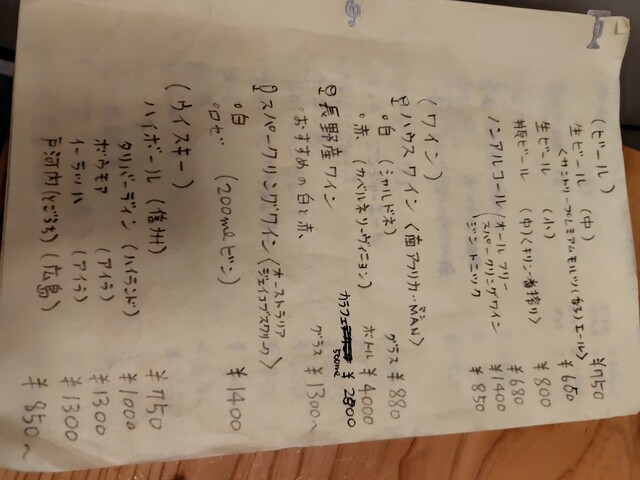 (ビール)
生ビール (中) ¥750
<サントリープレミアムモルツ/香るエール>
生ビール (小) ¥600
瓶ビール (中) <キリン一番搾り> ¥800
ノンアルコール (オールフリー ¥680
スパークリングワイン ¥1400
ジントニック ¥850
(ワイン)
ハウスワイン <南アフリカ・MAN>
白 (シャルドネ) グラス ¥880
赤 (カベルネソーヴィニヨン) ボトル ¥4000
カラフェ 500ml ¥2800
長野産ワイン
おすすめの白と赤 グラス ¥1300~
スパークリングワイン <オーストラリア
ジェイコブスクリーク>
白
ロゼ (200mlビン) ¥1400
(ウイスキー)
ハイボール (信州) ¥750
タリバーディン (ハイランド) ¥1000
ボウモア (アイラ) ¥1300
(アイラ) ¥1300
戸河内 (とごうち) (広島) ¥850~